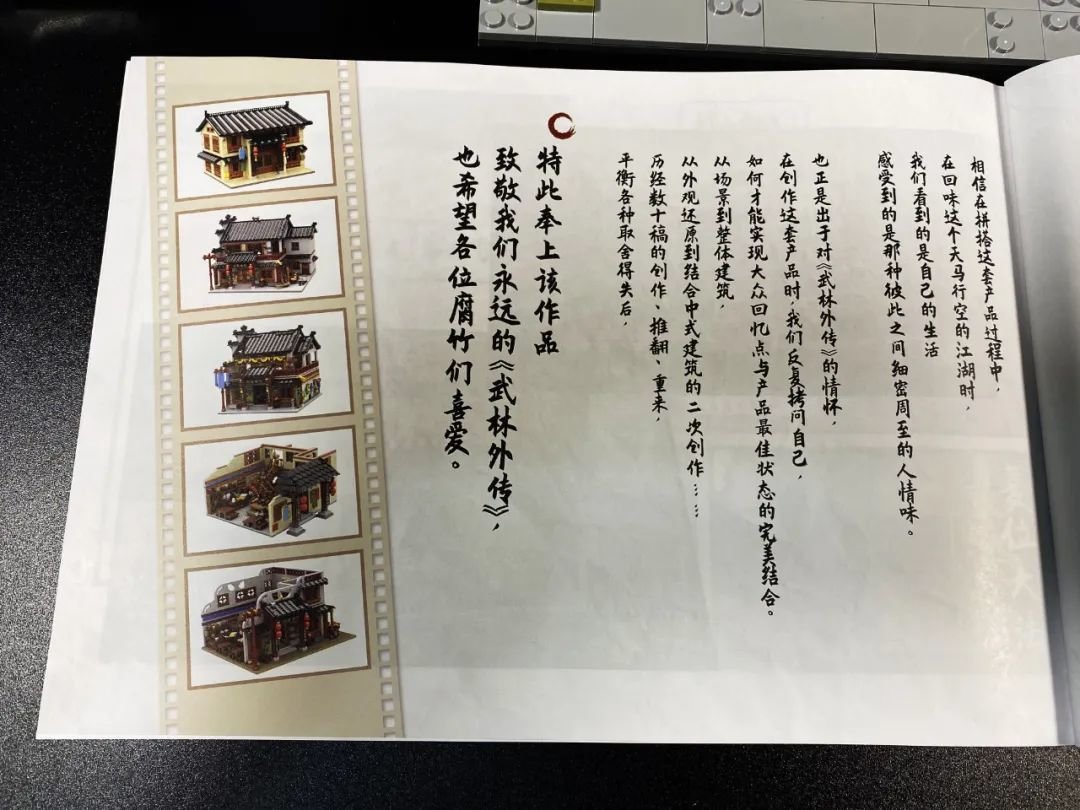 相信在拼搭这套产品过程中，
在回味这个天马行空的江湖时，
我们看到的是自己的生活
感受到的是那种彼此之间细密周至的人情味。
也正是出于对《武林外传》的情怀，
在创作这套产品时，我们反复拷问自己，
如何才能实现大众回忆点与产品最佳状态的完美结合。
从场景到整体建筑，
从外观还原到结合中式建筑的二次创作……
历经数十稿的创作、推翻、重来，
平衡各种取舍得失后，
特此奉上该作品
致敬我们永远的《武林外传》，
也希望各位腐竹们喜爱。